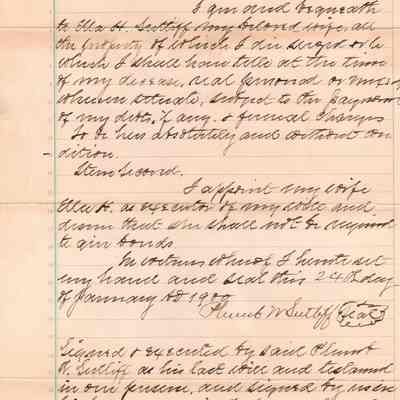 I give and bequeath
to Ella H. Sutliff my beloved wife, all
the property of which I die seized or to
which I shall have title at the time
of my decease, real personal or mixed
wherever situate, subject to the payment
of my debts, if any & funeral charges
To be hers absolutely and without con
dition.
Item Second.
I appoint my wife
Ella H. as executor of my will and
desire that she shall not be required
to give bonds
In witness whereof I hereto set
my hand and seal this 24th day
of January AD 1900
Plumb W Sutliff Seal
Signed & executed by said Plumb
W. Sutliff as his last will and testament
in our presence, and signed by us in
his